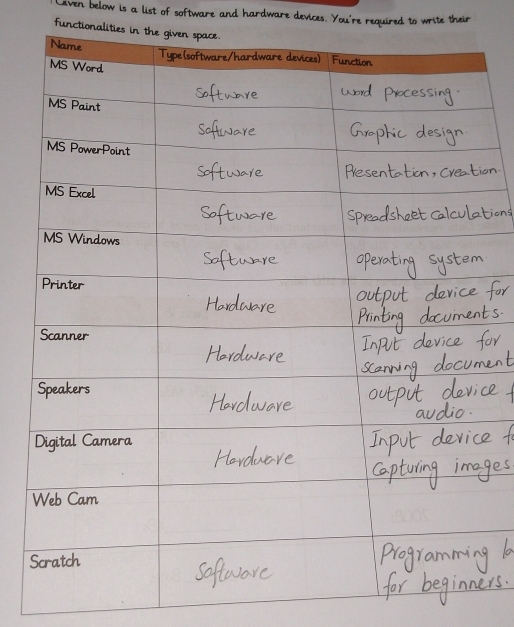 Given below is a list of software and hardware devices. You're required to write their
functionalities in the given space.
Name Type(software/hardware devices) Function
MS Word Software word processing.
MS Paint Software Graphic design.
MS PowerPoint Software Presentation, creation.
MS Excel Software spreadsheet calculations
MS Windows Software operating system
Printer Hardware output device for
Printing documents.
Scanner Hardware Input device for
scanning document
Speakers Hardware output device f
audio.
Digital Camera Hardware Input device fo
Capturing images.
Web Cam
Scratch Software Programming la
for beginners.